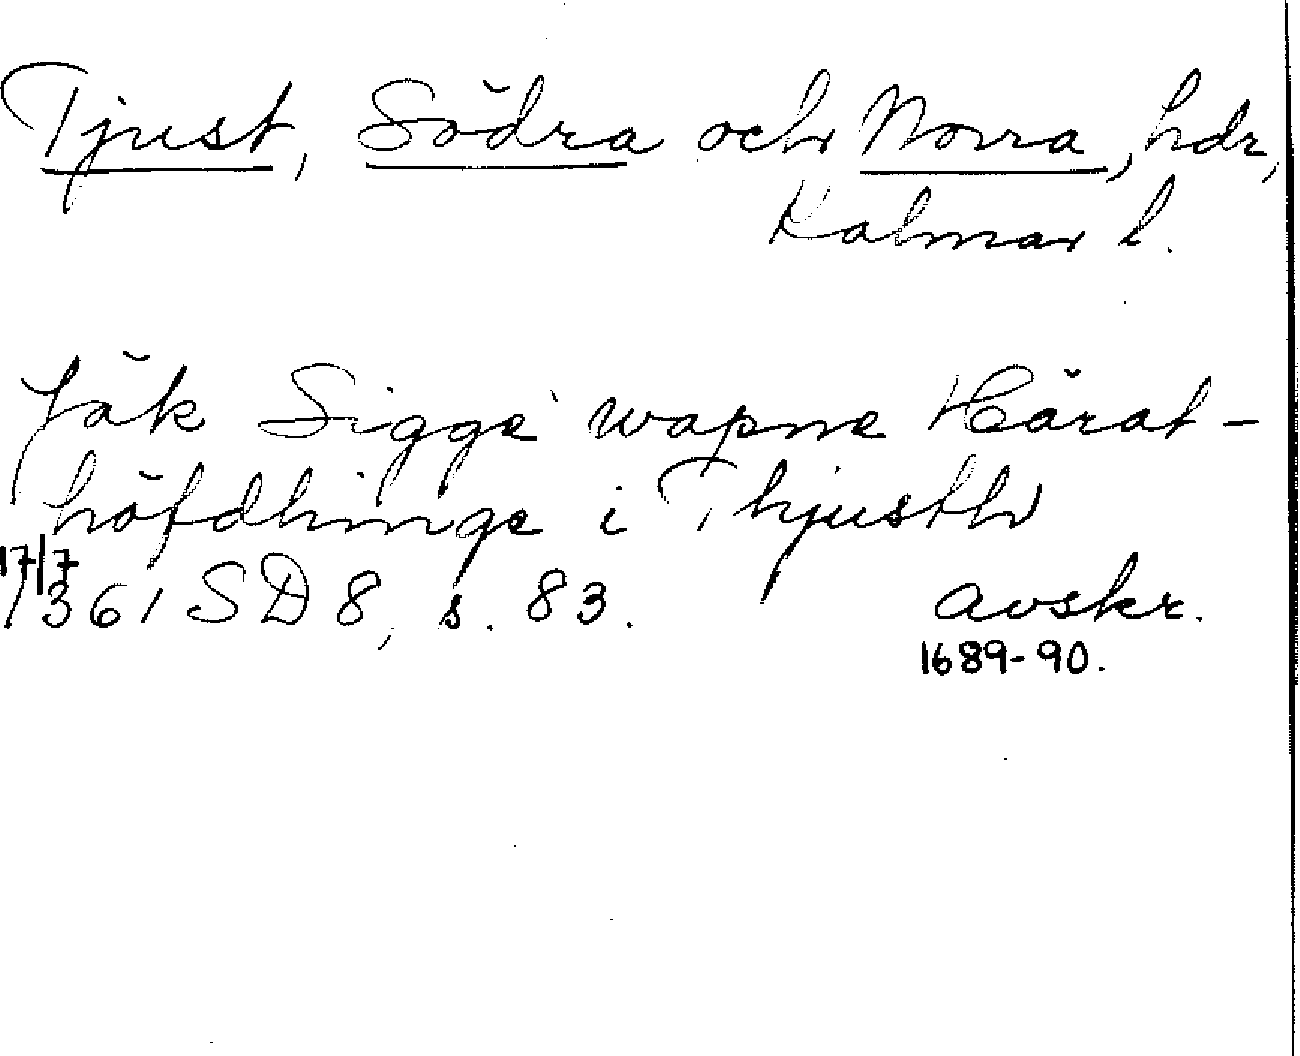 Tjust, Södra och Norra, hdr,
Kalmar l.
Jäk Sigge wapne Härat-
höfdhinge i Thjusth
17/7
1361 SD 8, s. 83. avskr.
1689-90.